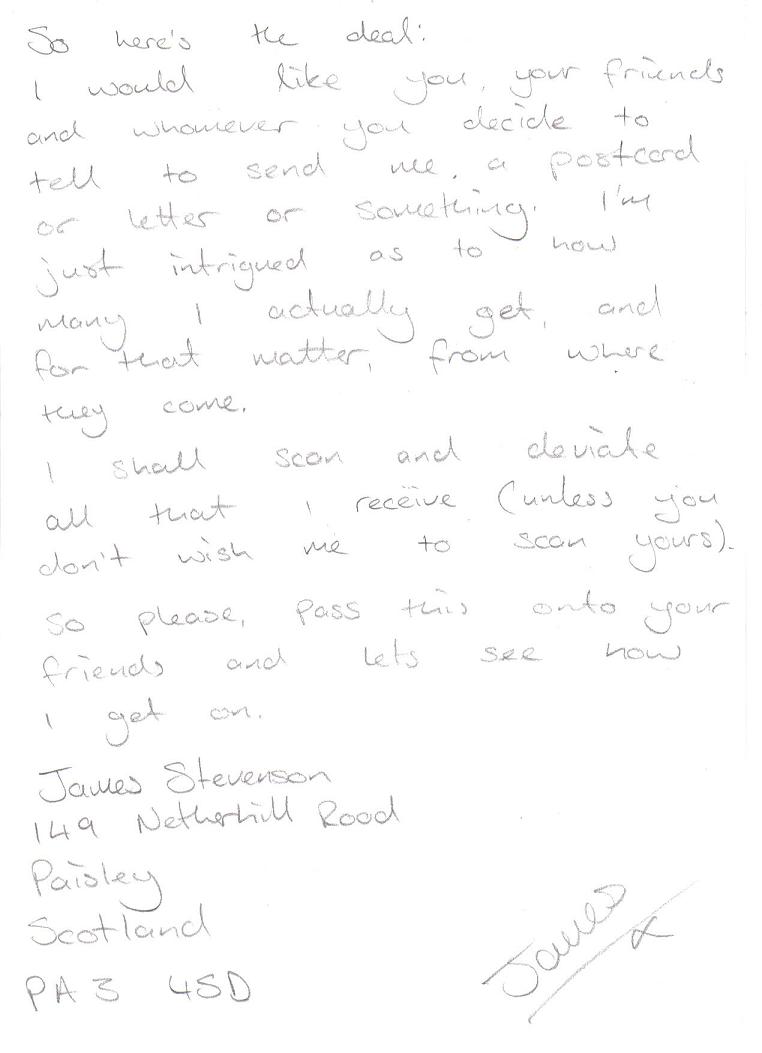 So here's the deal:
I would like you, your friends
and whomever you decide to
tell to send me, a postcard
or letter or something. I'm
just intrigued as to how
many I actually get, and
for that matter, from where
they come.
I shall scan and deviate
all that I receive (unless you
don't wish me to scan yours).
So please, pass this onto your
friends and lets see how
I get on.
James Stevenson
149 Netherhill Road
Paisley
Scotland
PA3 4SD
James
x